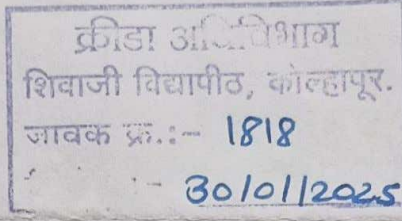 क्रीडा अधिविभाग
शिवाजी विद्यापीठ, कोल्हापूर.
जावक क्र.:- 1818
- 30/01/2025